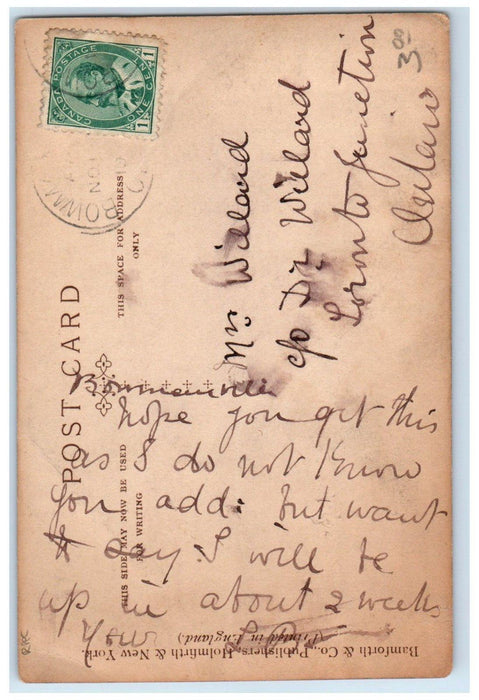 CANADA POSTAGE
ONE CENT
1 1
BOWMA
NO
POST CARD
THIS SPACE FOR ADDRESS
ONLY
THIS SIDE MAY NOW BE USED
FOR WRITING
38
Mrs Willard
c/o Dr Willard
Toronto Junction
Ontario
Bowmanville
hope you get this
as I do not know
you add. but want
to say I will be
up in about 2 weeks
Your
Bamforth & Co., Publishers, Holmfirth & New York.
(Printed in England.)